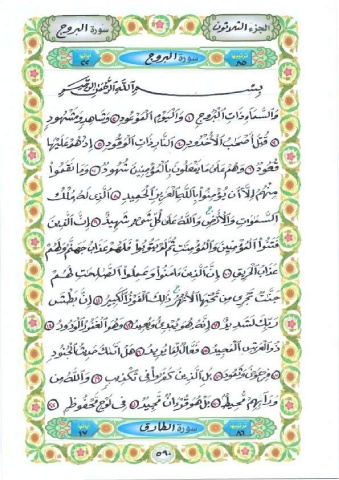 الجزء الثلاثون سورة البروج
ترتيبها ٨٥ سورة البروج آياتها ٢٢
بسم الله الرحمن الرحيم
وَالسَّمَاءِ ذَاتِ الْبُرُوجِ ۝ وَالْيَوْمِ الْمَوْعُودِ ۝ وَشَاهِدٍ وَمَشْهُودٍ
۝ قُتِلَ أَصْحَٰبُ الْأُخْدُودِ ۝ النَّارِ ذَاتِ الْوَقُودِ ۝ إِذْ هُمْ عَلَيْهَا
قُعُودٌ ۝ وَهُمْ عَلَىٰ مَا يَفْعَلُونَ بِالْمُؤْمِنِينَ شُهُودٌ ۝ وَمَا نَقَمُوا
مِنْهُمْ إِلَّا أَن يُؤْمِنُوا بِاللَّهِ الْعَزِيزِ الْحَمِيدِ ۝ الَّذِي لَهُ مُلْكُ
السَّمَٰوَٰتِ وَالْأَرْضِ وَاللَّهُ عَلَىٰ كُلِّ شَيْءٍ شَهِيدٌ ۝ إِنَّ الَّذِينَ
فَتَنُوا الْمُؤْمِنِينَ وَالْمُؤْمِنَٰتِ ثُمَّ لَمْ يَتُوبُوا فَلَهُمْ عَذَابُ جَهَنَّمَ وَلَهُمْ
عَذَابُ الْحَرِيقِ ۝ إِنَّ الَّذِينَ ءَامَنُوا وَعَمِلُوا الصَّٰلِحَٰتِ لَهُمْ
جَنَّٰتٌ تَجْرِي مِن تَحْتِهَا الْأَنْهَٰرُ ذَٰلِكَ الْفَوْزُ الْكَبِيرُ ۝ إِنَّ بَطْشَ
رَبِّكَ لَشَدِيدٌ ۝ إِنَّهُ هُوَ يُبْدِئُ وَيُعِيدُ ۝ وَهُوَ الْغَفُورُ الْوَدُودُ ۝
ذُو الْعَرْشِ الْمَجِيدُ ۝ فَعَّالٌ لِّمَا يُرِيدُ ۝ هَلْ أَتَىٰكَ حَدِيثُ الْجُنُودِ
۝ فِرْعَوْنَ وَثَمُودَ ۝ بَلِ الَّذِينَ كَفَرُوا فِي تَكْذِيبٍ ۝ وَاللَّهُ مِن
وَرَائِهِم مُّحِيطٌ ۝ بَلْ هُوَ قُرْءَانٌ مَّجِيدٌ ۝ فِي لَوْحٍ مَّحْفُوظٍ ۝
ترتيبها ٨٦ سورة الطارق آياتها ١٧
٥٩٠